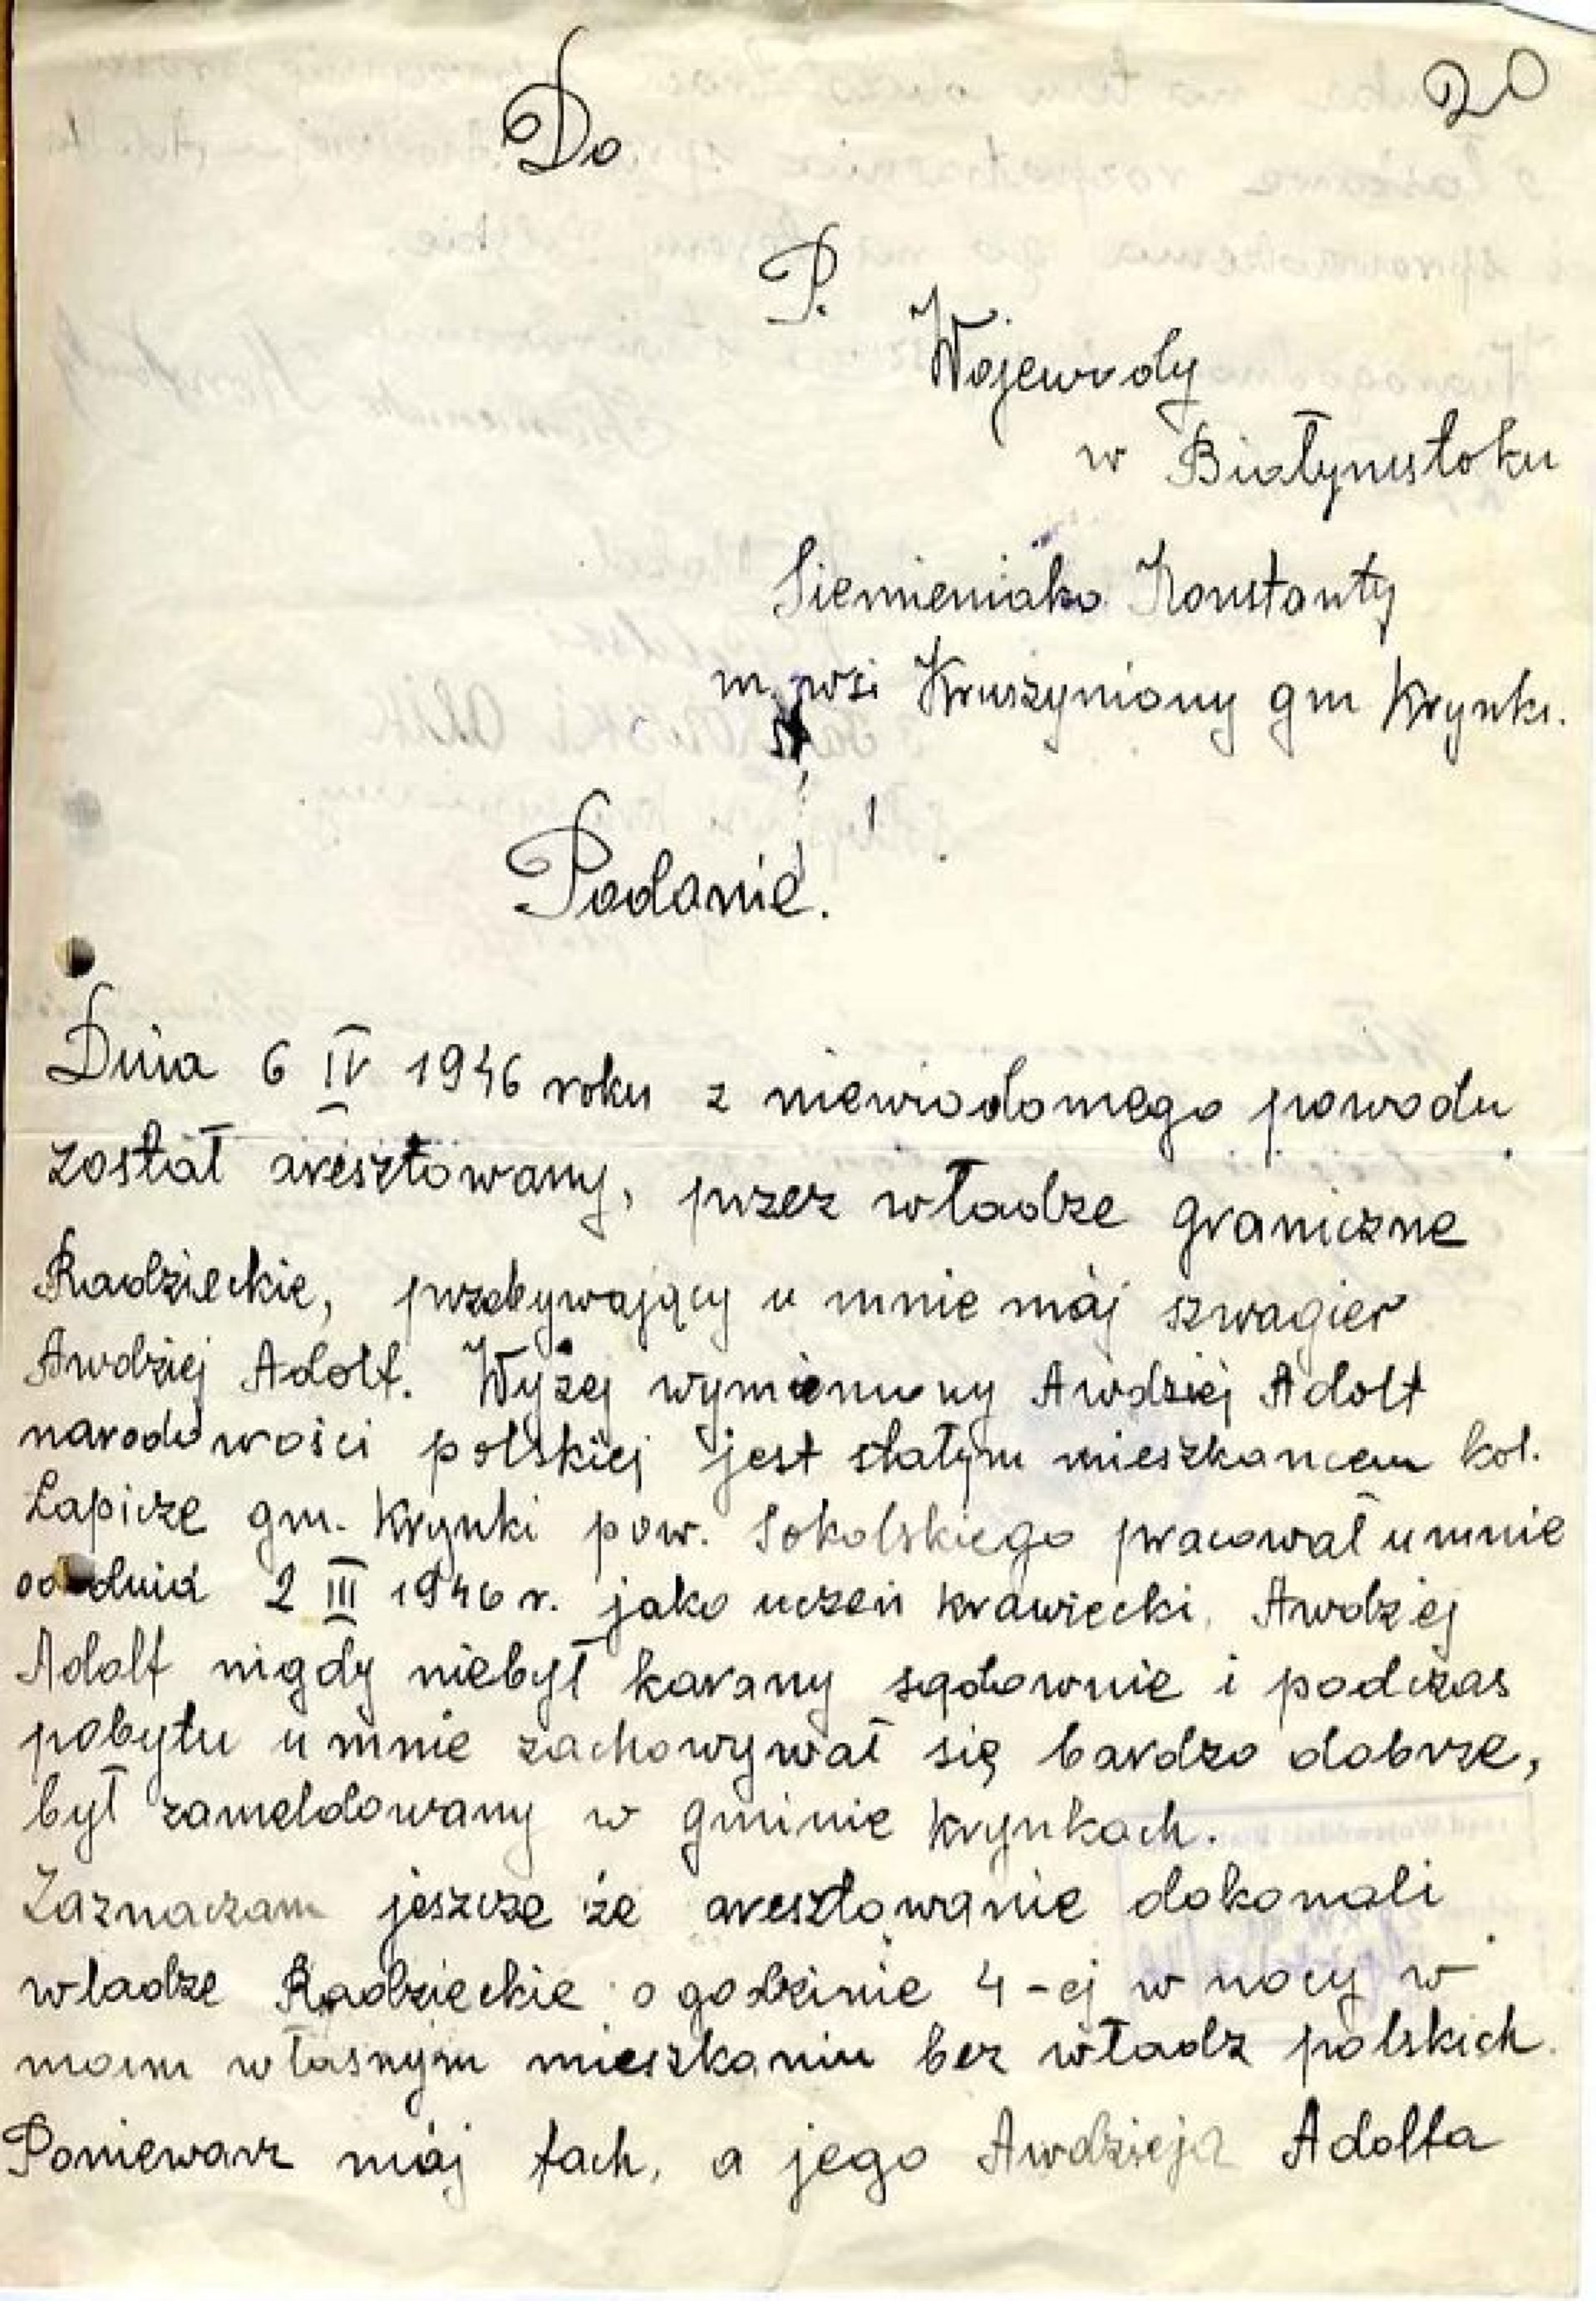 20
Do
P.
Wojewody
w Białymstoku
Siemieniako Konstanty
m. wsi Kruszyniany gm Krynki.
Podanie.
Dnia 6 IV 1946 roku z niewiadomego powodu
został aresztowany, przez władze graniczne
Radzieckie, przebywający u mnie mój szwagier
Awdziej Adolf. Wyżej wymieniony Awdziej Adolf
narodowości polskiej jest stałym mieszkancem kol.
Łapicze gm. Krynki pow. Sokolskiego pracował u mnie
od dnia 2 III 1946 r. jako uczeń krawiecki. Awdziej
Adolf nigdy niebył karany sądownie i podczas
pobytu u mnie zachowywał się bardzo dobrze,
był zameldowany w gminie Krynkach.
Zaznaczam jeszcze że aresztowanie dokonali
władze Radzieckie o godzinie 4-ej w nocy w
moim własnym mieszkaniu bez władz polskich.
Poniewarz mój fach, a jego Awdzieja Adolfa